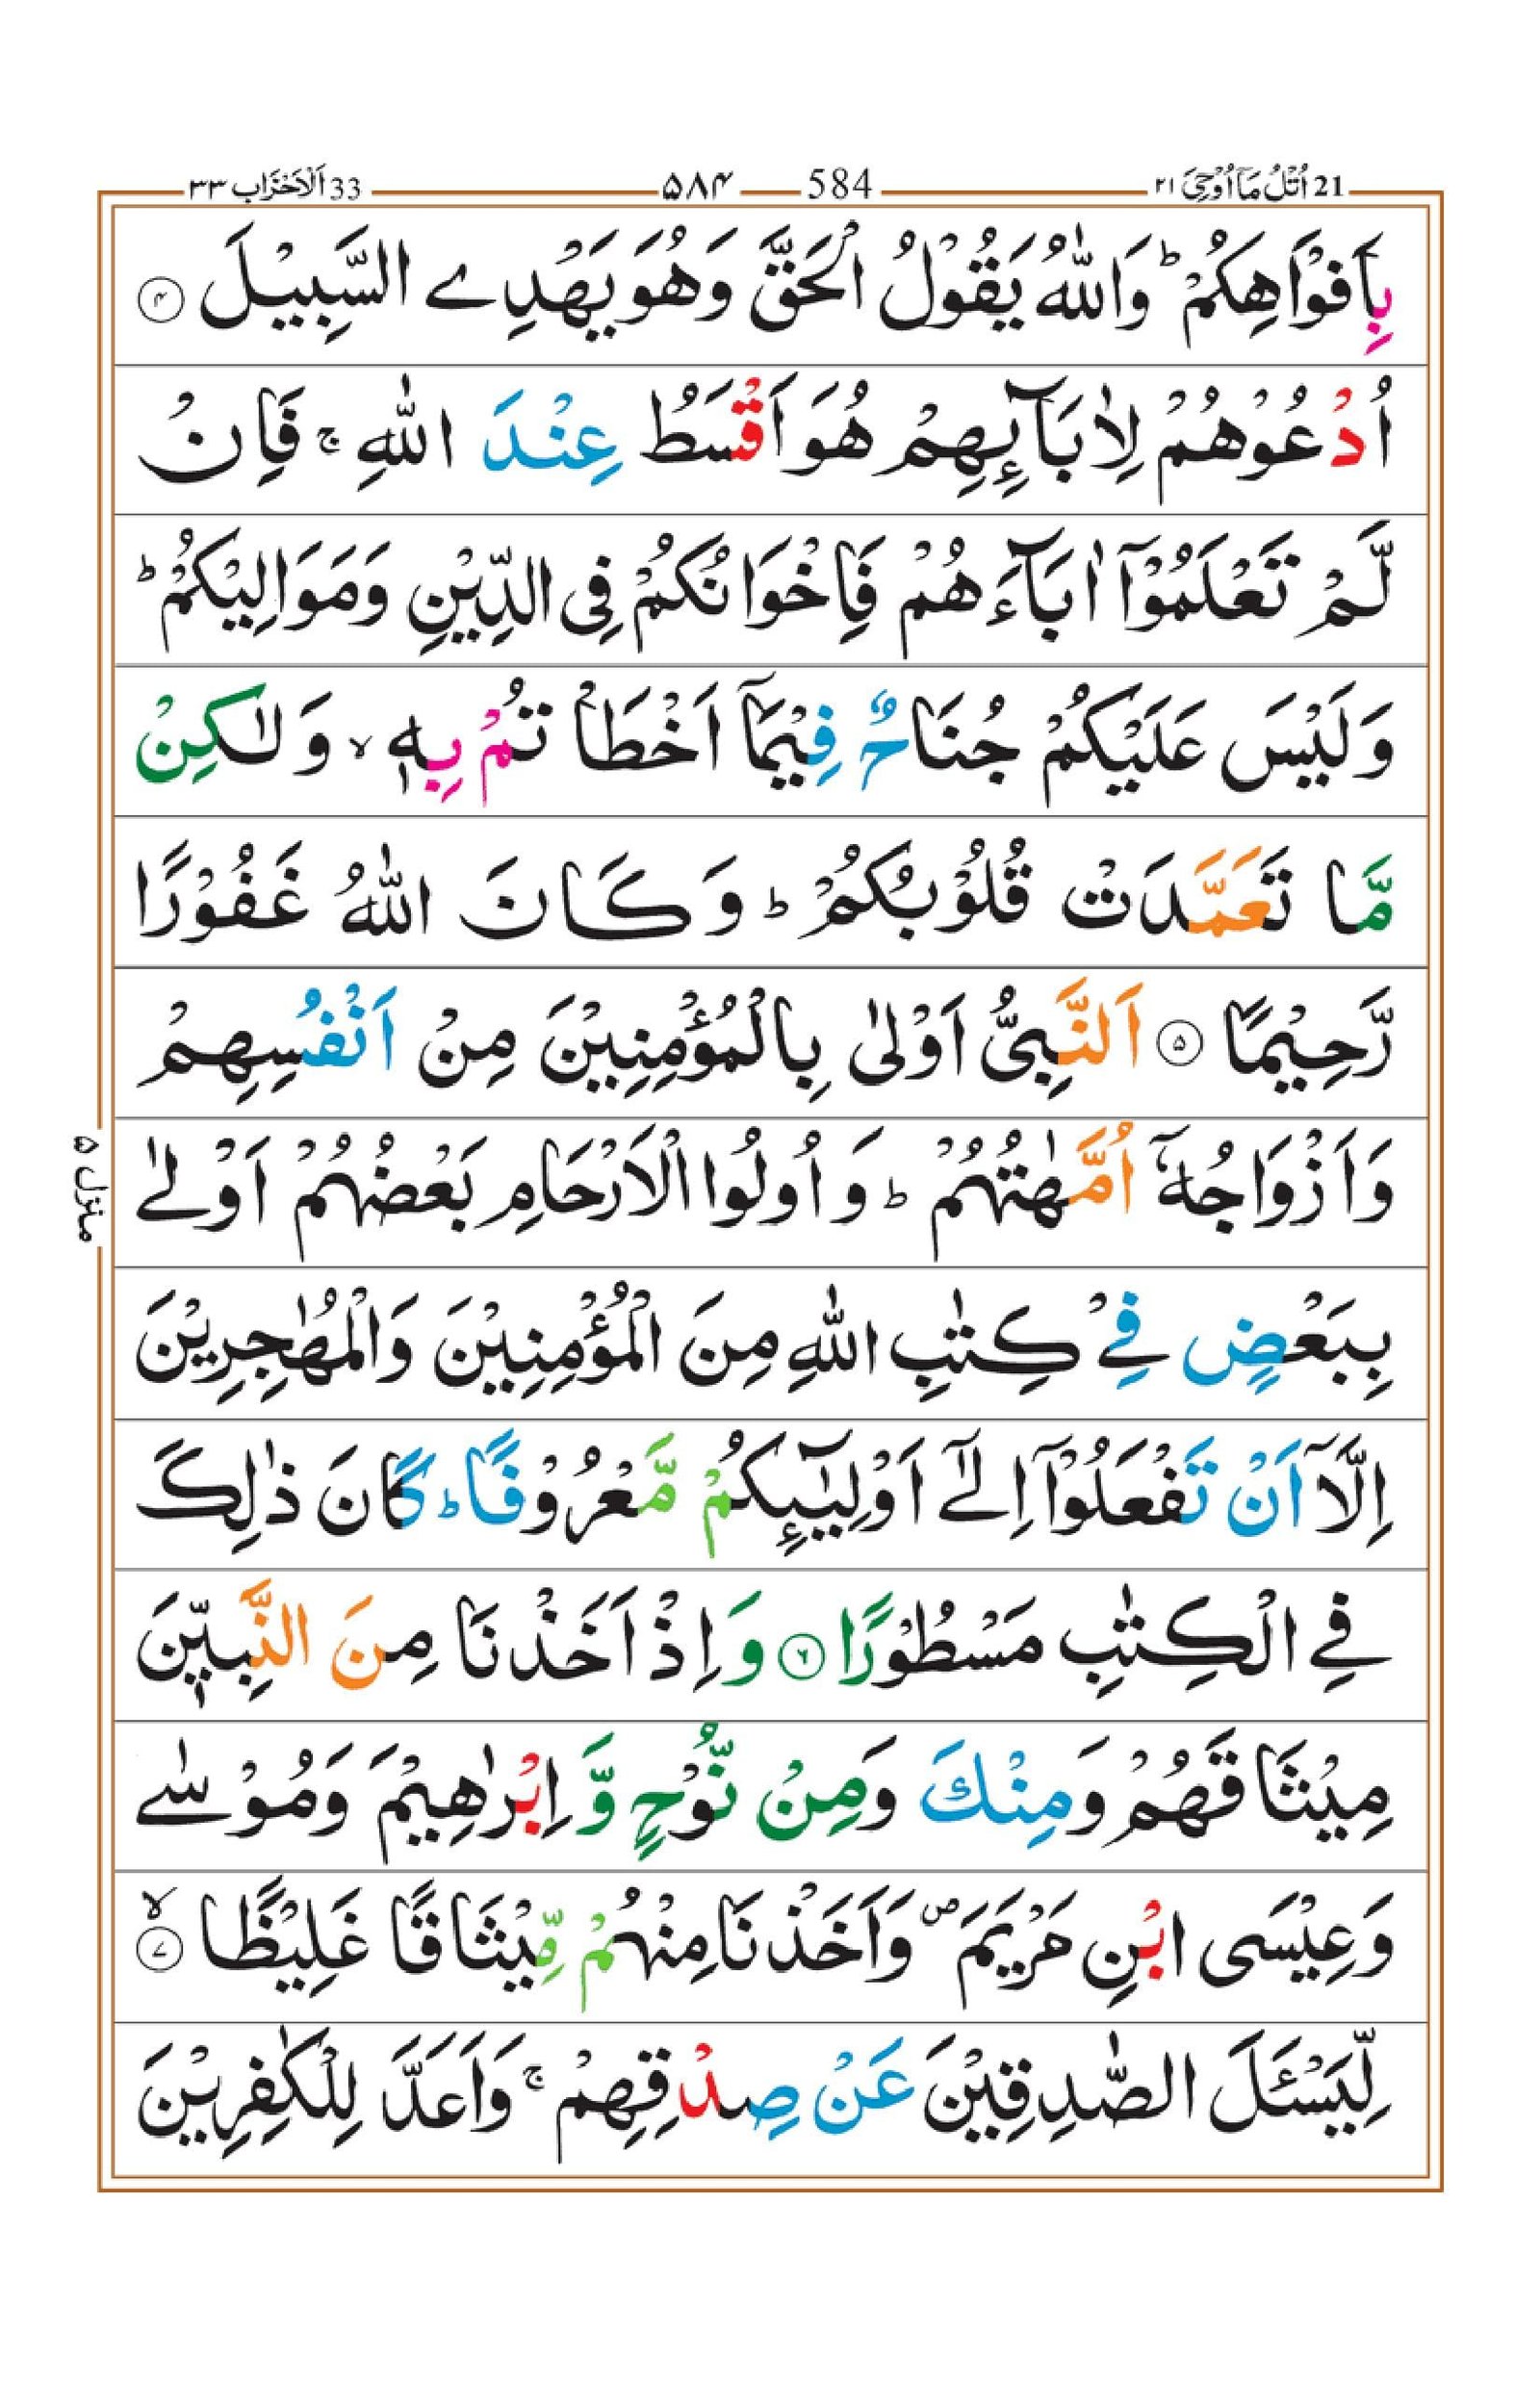 21 اُتْلُ مَآ اُوْحِیَ ۲۱ 584 ۵۸۴ 33 اَلْاَحْزَاب ۳۳
بِاَفْوَاهِكُمْ ؕ وَاللّٰهُ يَقُوْلُ الْحَقَّ وَهُوَ يَهْدِے السَّبِيْلَ ۴
اُدْعُوْهُمْ لِاٰبَآئِهِمْ هُوَ اَقْسَطُ عِنْدَ اللّٰهِ ۚ فَاِنْ
لَّمْ تَعْلَمُوْۤا اٰبَآءَهُمْ فَاِخْوَانُكُمْ فِی الدِّيْنِ وَمَوَالِيْكُمْ ؕ
وَلَيْسَ عَلَيْكُمْ جُنَاحٌ فِيْمَاۤ اَخْطَاْتُمْ بِهٖ ۙ وَلٰكِنْ
مَّا تَعَمَّدَتْ قُلُوْبُكُمْ ؕ وَكَانَ اللّٰهُ غَفُوْرًا
رَّحِيْمًا ۵ اَلنَّبِیُّ اَوْلٰى بِالْمُؤْمِنِيْنَ مِنْ اَنْفُسِهِمْ
وَاَزْوَاجُهٗۤ اُمَّهٰتُهُمْ ؕ وَاُولُوا الْاَرْحَامِ بَعْضُهُمْ اَوْلٰے
بِبَعْضٍ فِیْ كِتٰبِ اللّٰهِ مِنَ الْمُؤْمِنِيْنَ وَالْمُهٰجِرِيْنَ
اِلَّاۤ اَنْ تَفْعَلُوْۤا اِلٰۤے اَوْلِيٰٓئِكُمْ مَّعْرُوْفًا ؕ كَانَ ذٰلِكَ
فِے الْكِتٰبِ مَسْطُوْرًا ۶ وَاِذْ اَخَذْنَا مِنَ النَّبِيّٖنَ
مِيْثَاقَهُمْ وَمِنْكَ وَمِنْ نُّوْحٍ وَّاِبْرٰهِيْمَ وَمُوْسٰے
وَعِيْسَى ابْنِ مَرْيَمَ ۪ وَاَخَذْنَا مِنْهُمْ مِّيْثَاقًا غَلِيْظًا ۙ ۷
لِّيَسْئَلَ الصّٰدِقِيْنَ عَنْ صِدْقِهِمْ ۚ وَاَعَدَّ لِلْكٰفِرِيْنَ
منزل ۵